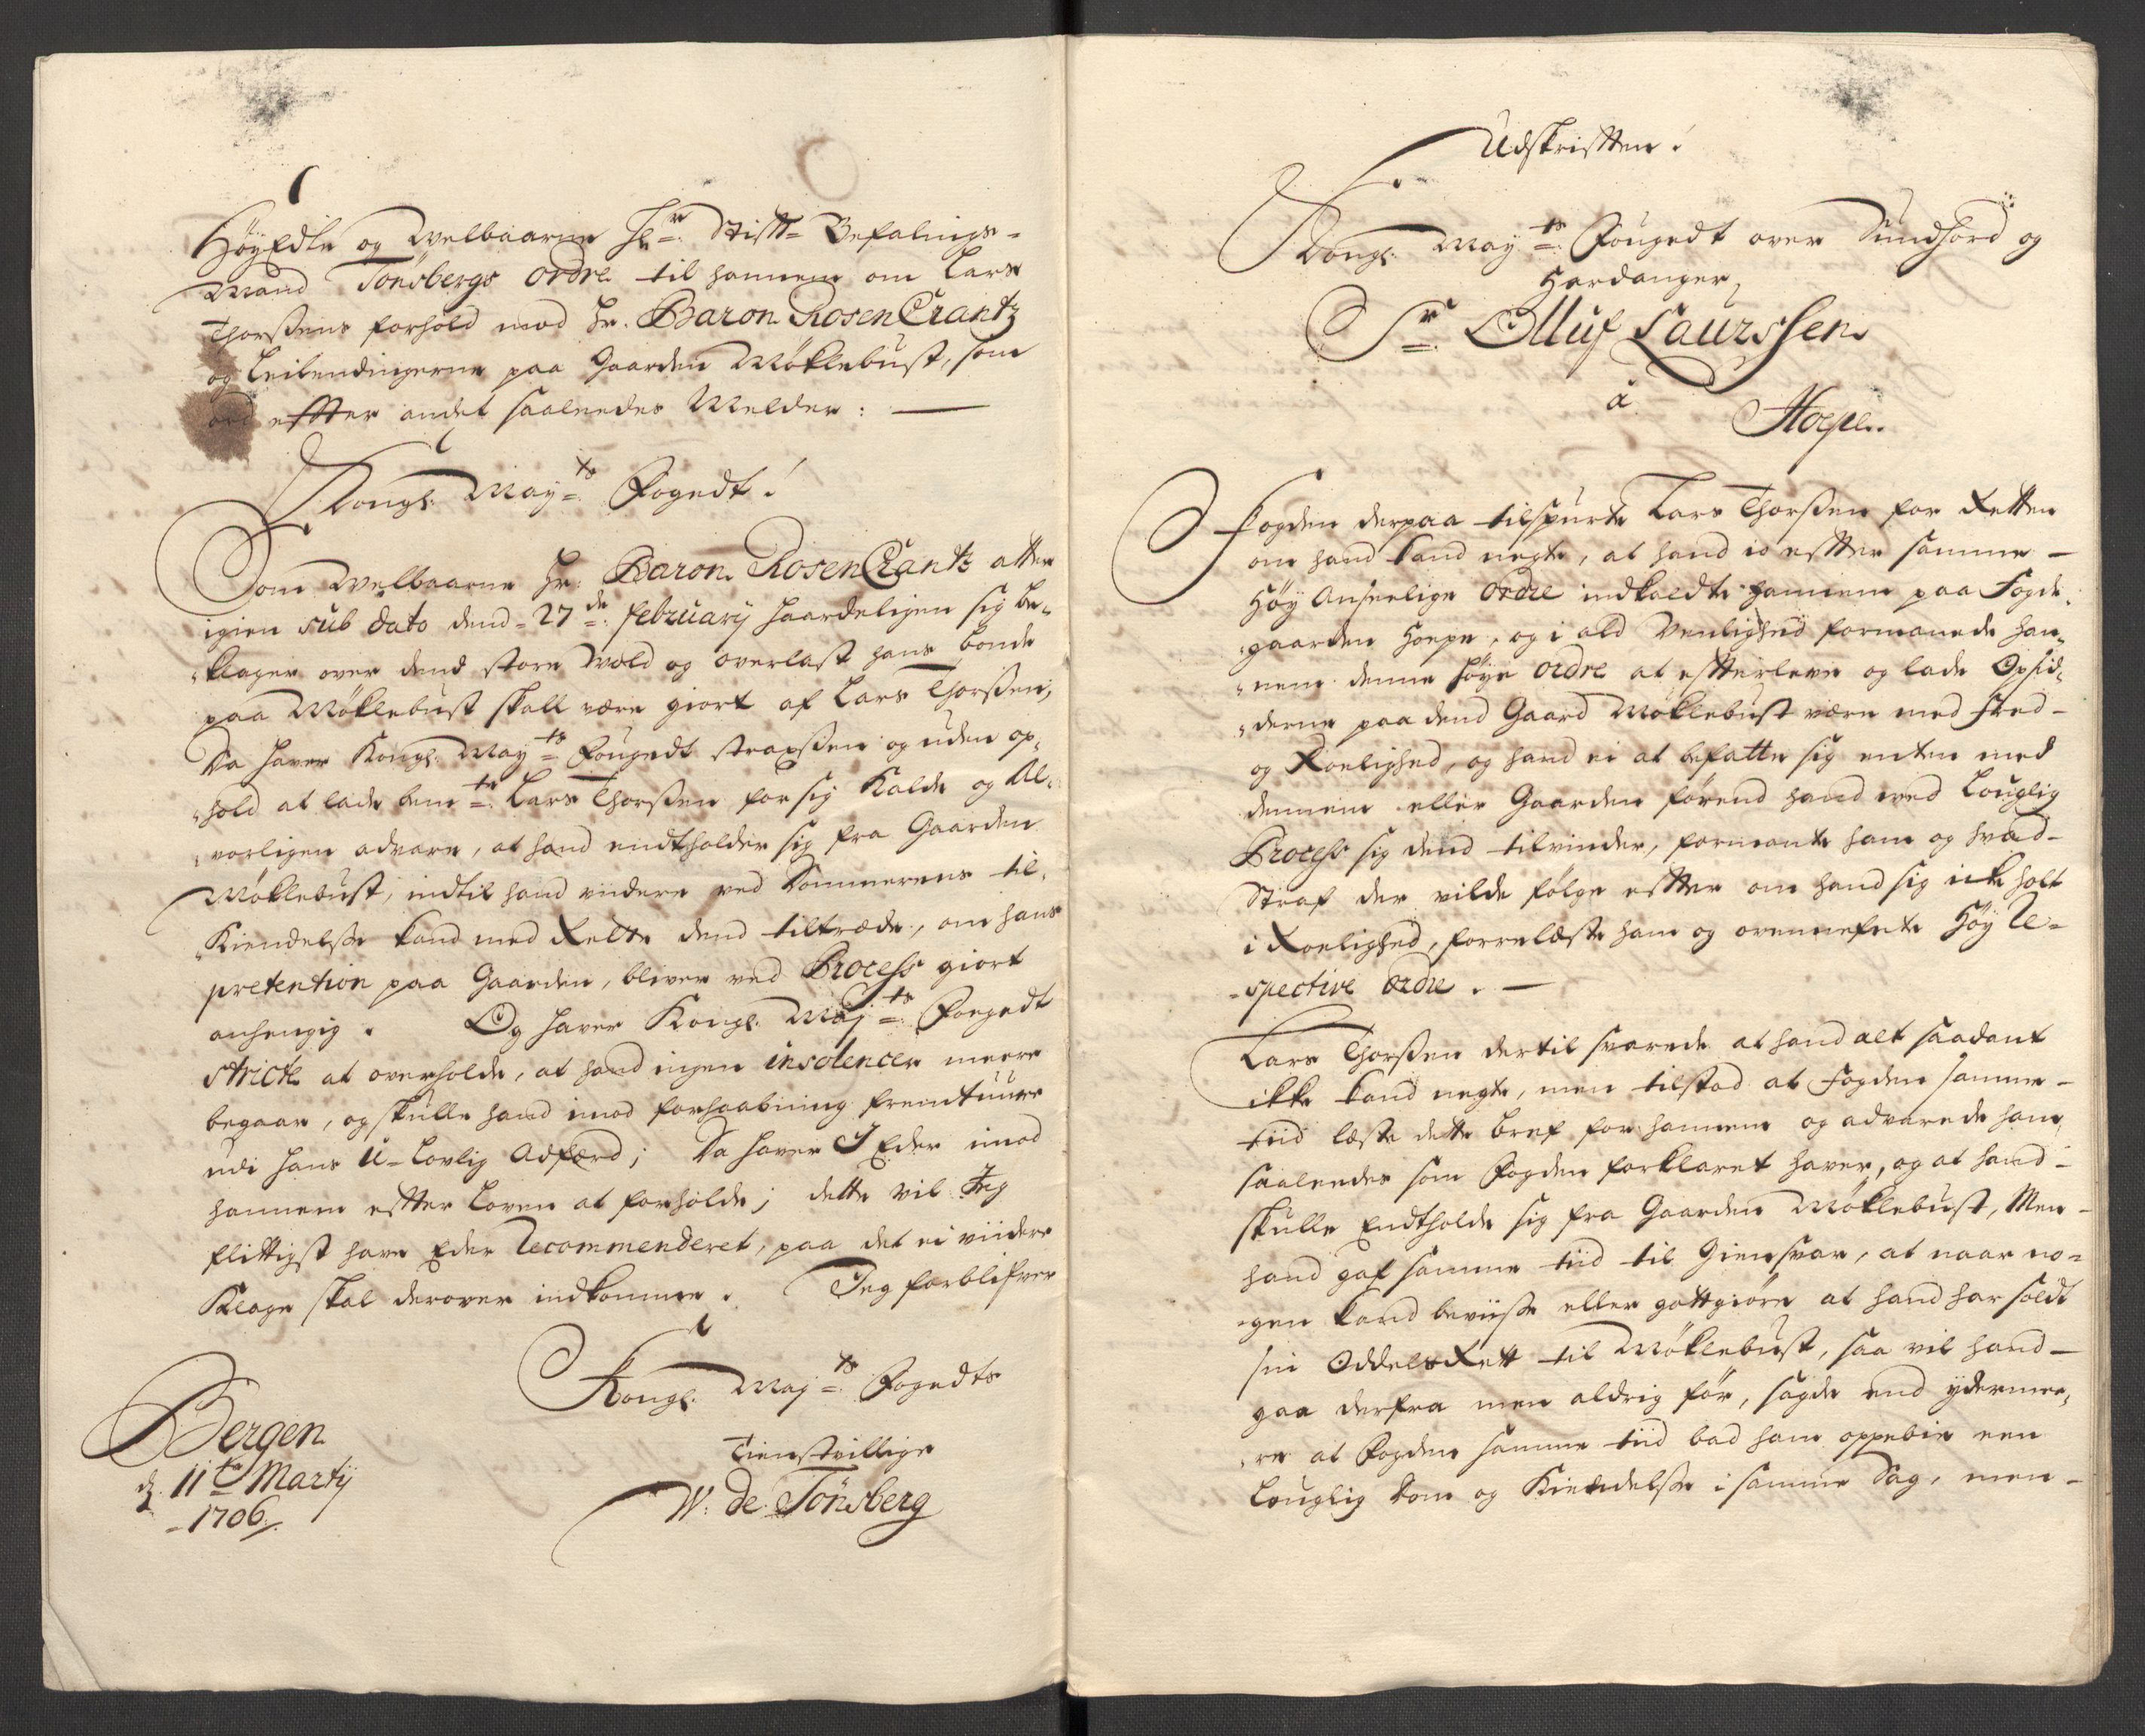 HöyEdle og Welbaarne Hr. Stift- Befalings-
Mand Tönsbergs ordre til hannem om Lars
Thorßens forhold mod Hr. Baron RosenCrantz
og Leilendingerne paa Gaarden Möklebust, som
ord effter andet saaleedes Melder: —
Kongl. May.ts Fogedt!
Som Welbaarne Hr: Baron RosenCrantz atter
igien sub dato dend 27de february haardeligen sig be-
klager over dend store Wold og overlast hans bonde
paa Möklebust skall være giort af Lars Thorßen,
Da haver Kongl. May.ts Fougedt straxßen og uden op-
hold at lade bem.te Lars Thorßen for sig Kalde og Al-
vorligen advare, at hand endtholder sig fra Gaarden
Möklebust, indtil hand viidere ved Dommerens til-
Kiendelße kand med Rette dend tiltræde, om hans
pretention paa Gaarden, bliver ved Process giort
anhengig. Og haver Kongl. May.ts Foegedt
stricte at overholde, at hand ingen insolencer meere
begaar, og skulle hand imod forhaabning fremtuure
udi hans U-Lovlig Adfærd; Da haver I Eder imod
hannem effter Loven at forholde; dette vil Jeg
flittigst have Eder Recommenderet, paa det ei viidere
Klage skal derover indkomme. Jeg forblifver
Kongl. May.ts Fogedts
Tienstvillige
W: de Tönsberg
Bergen
d. 11te Martij
1706.
Udskrifften!
Kongl. May.ts Fougedt over Sundhord og
Hardanger,
Sr. Olluf Laurssen
à
Hoepe.
Fogden derpaa tilspurte Lars Thorßen for Retten
om hand kand negte, at hand io effter samme
Höy Anseelige Ordre indkaldte hannem paa Fogde-
gaarden Hoepe, og i all Venlighed formanede han-
nem denne Höye Ordre at effterleve og lade Opsid-
derne paa dend Gaard Möklebust være med Fred
og Roelighed, og hand ei at befatte sig enten med
dennem eller Gaarden förend hand med Louglig
Process sig dend tilvinder, formante ham og hvad
Straf der vilde fölge effter om hand sig icke holt
i Roelighed, forrelæste ham og ovennefnte Höy Re-
spective Ordre. —
Lars Thorßen dertil svarede at hand alt saadant
ikke kand negte, men tilstod at Fogden samme
tiid læste dette bref for hannem og advarede ham,
saaleedes som Fogden forklaret haver, og at hand
skulle Endtholde sig fra Gaarden Möklebust, Men
hand gaf samme tiid til Giensvar, at naar no-
gen kand beviiße eller gottgiöre at hand har soldt
sin OddelsRett til Möklebust, saa vil hand
gaa derfra men aldrig för, sagde end ydermee-
re at Fogden samme tiid bad ham oppebie een
Louglig Dom og Kiendelße i samme Sag, men